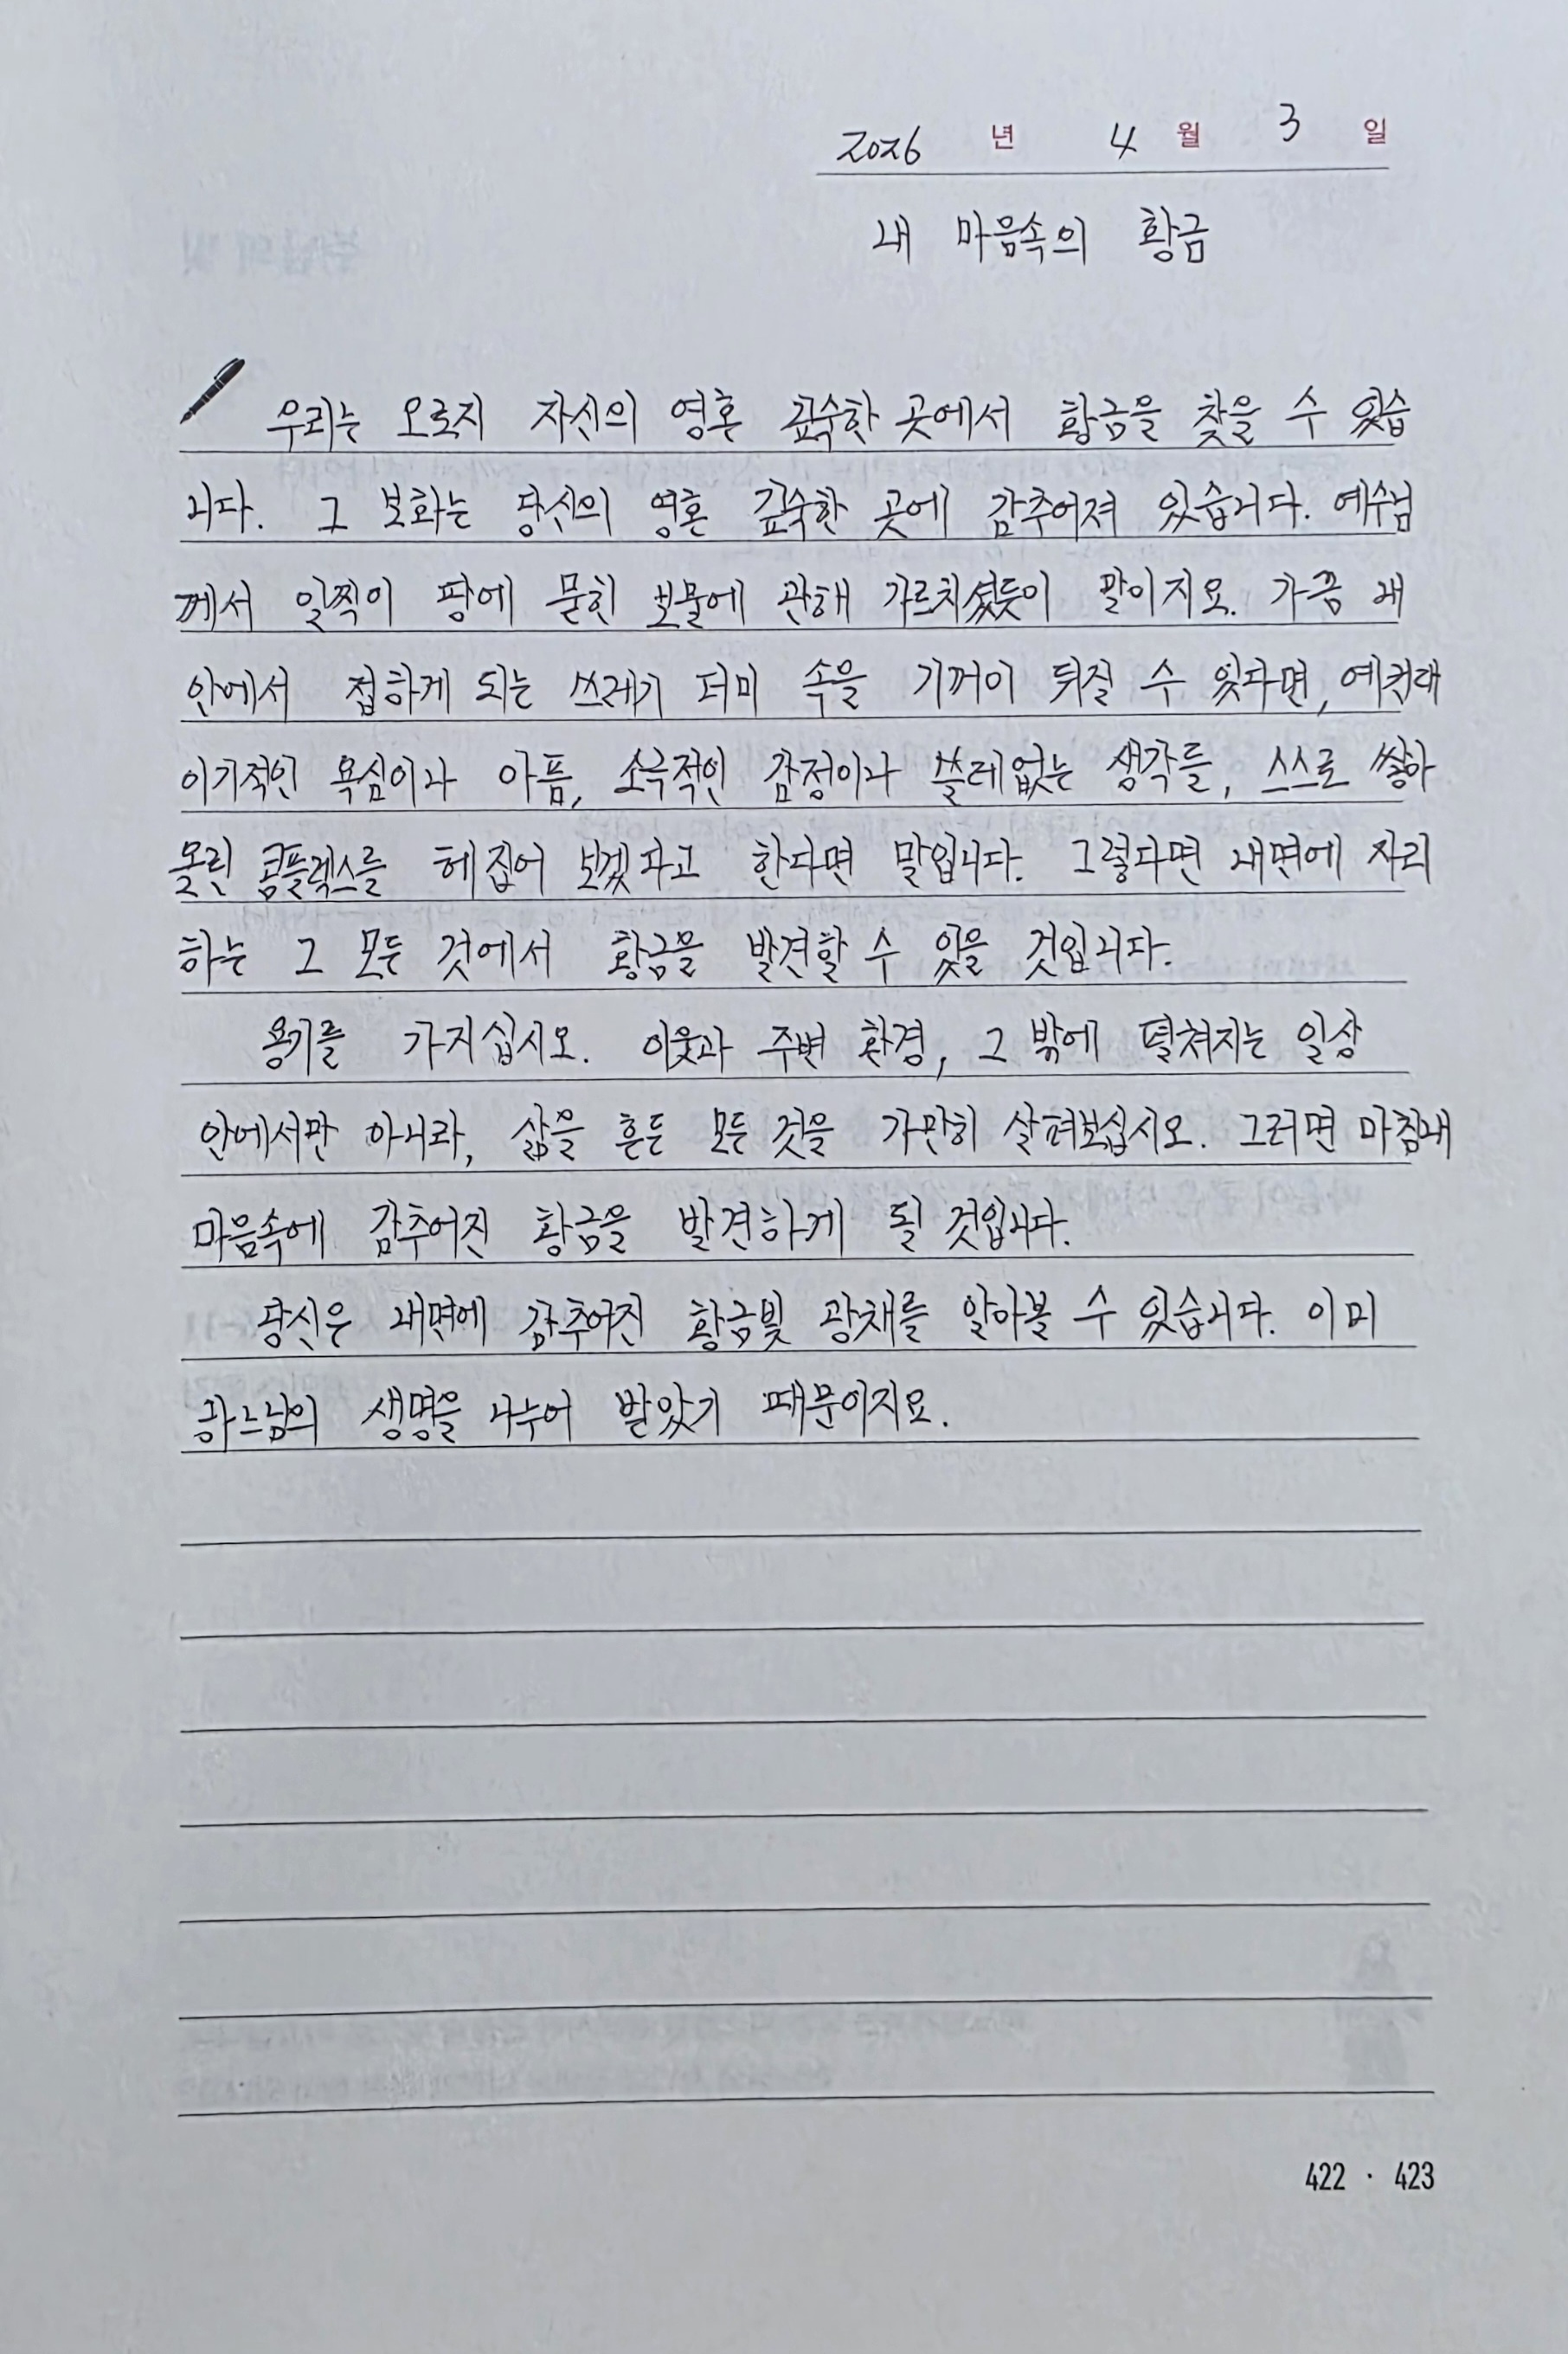 2026 년 4 월 3 일
내 마음속의 황금
우리는 오로지 자신의 영혼 깊숙한 곳에서 황금을 찾을 수 있습
니다. 그 보화는 당신의 영혼 깊숙한 곳에 감추어져 있습니다. 예수님
께서 일찍이 땅에 묻힌 보물에 관해 가르치셨듯이 말이지요. 가끔 내
안에서 접하게 되는 쓰레기 더미 속을 기꺼이 뒤질 수 있다면, 예컨대
이기적인 욕심이나 아픔, 소극적인 감정이나 쓸데없는 생각들, 스스로 쌓아
올린 콤플렉스를 헤집어 보겠다고 한다면 말입니다. 그렇다면 내면에 자리
하는 그 모든 것에서 황금을 발견할 수 있을 것입니다.
용기를 가지십시오. 이웃과 주변 환경, 그 밖에 펼쳐지는 일상
안에서만 아니라, 삶을 흔든 모든 것을 가만히 살펴보십시오. 그러면 마침내
마음속에 감추어진 황금을 발견하게 될 것입니다.
당신은 내면에 감추어진 황금빛 광채를 알아볼 수 있습니다. 이미
하느님의 생명을 나누어 받았기 때문이지요.
422 · 423